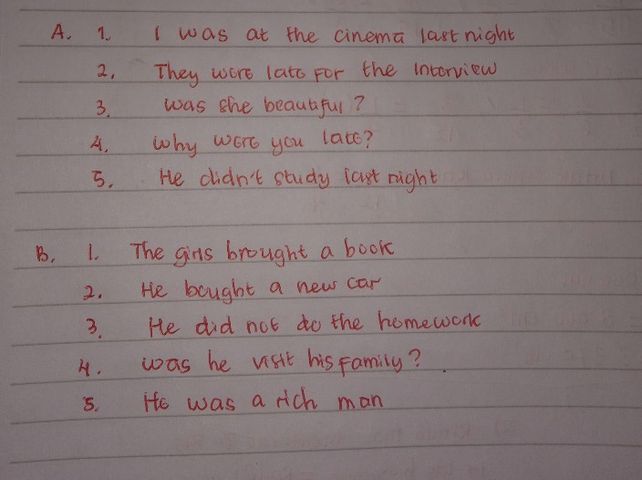 A. 1. I was at the cinema last night
2. They were late for the Interview
3. was she beautiful?
4. why were you late?
5. He didn't study last night
B. 1. The girls brought a book
2. He bought a new car
3. He did not do the homework
4. was he visit his family?
5. He was a rich man